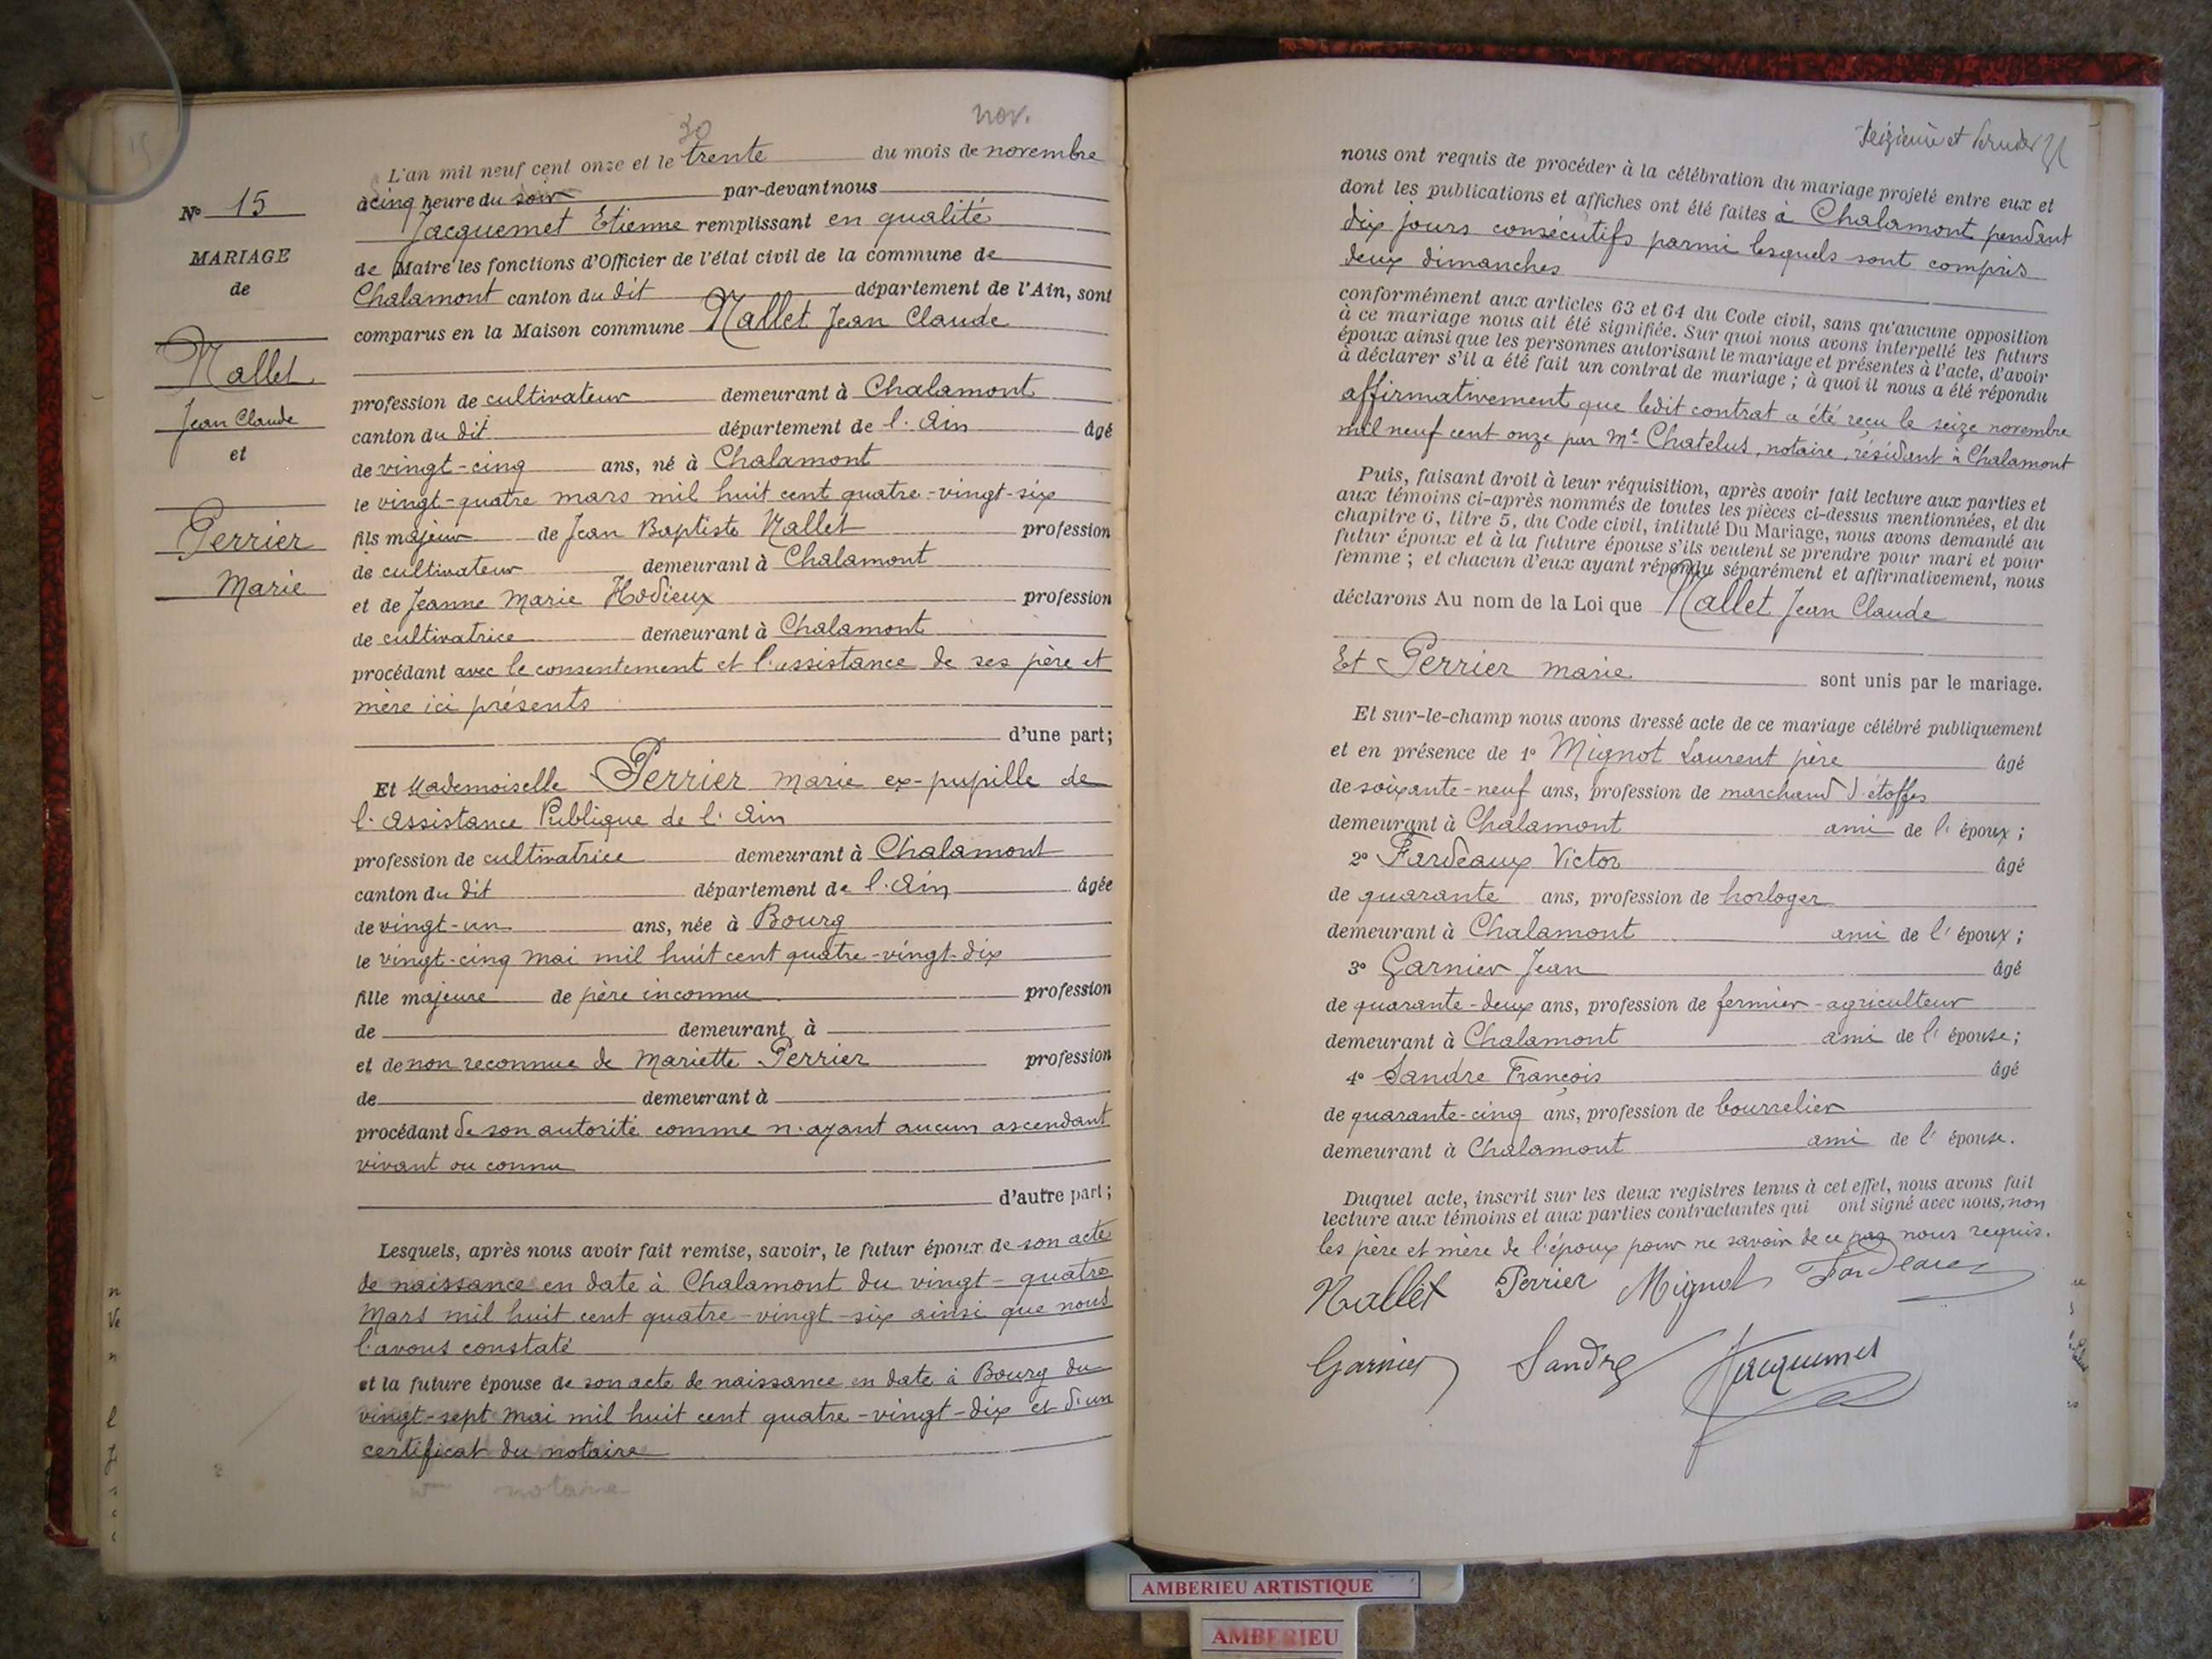 15
30
nov.
L'an mil neuf cent onze et le trente du mois de novembre
à cinq heure du soir par-devant nous
Jacquemet Etienne remplissant en qualité
de Maire les fonctions d'Officier de l'état civil de la commune de
Chalamont canton du dit département de l'Ain, sont
comparus en la Maison commune Nallet Jean Claude
profession de cultivateur demeurant à Chalamont
canton du dit département de l'Ain âgé
de vingt-cinq ans, né à Chalamont
le vingt-quatre mars mil huit cent quatre-vingt-six
fils majeur de Jean Baptiste Nallet profession
de cultivateur demeurant à Chalamont
et de Jeanne Marie Hodieux profession
de cultivatrice demeurant à Chalamont
procédant avec le consentement et l'assistance de ses père et
mère ici présents
d'une part;
Et Mademoiselle Perrier Marie ex-pupille de
l'Assistance Publique de l'Ain
profession de cultivatrice demeurant à Chalamont
canton du dit département de l'Ain âgée
de vingt-un ans, née à Bourg
le vingt-cinq mai mil huit cent quatre-vingt-dix
fille majeure de père inconnu profession
de demeurant à
et de non reconnue de Mariette Perrier profession
de demeurant à
procédant de son autorité comme n'ayant aucun ascendant
vivant ou connu
d'autre part;
Lesquels, après nous avoir fait remise, savoir, le futur époux de son acte
de naissance en date à Chalamont du vingt-quatre
Mars mil huit cent quatre-vingt-six ainsi que nous
l'avons constaté
et la future épouse de son acte de naissance en date à Bourg du
vingt-sept mai mil huit cent quatre-vingt-dix et d'un
certificat du notaire
notaire
N° 15
MARIAGE
de
Nallet
Jean Claude
et
Perrier
Marie
et
nous ont requis de procéder à la célébration du mariage projeté entre eux et
dont les publications et affiches ont été faites à Chalamont pendant
dix jours consécutifs parmi lesquels sont compris
deux dimanches
conformément aux articles 63 et 64 du Code civil, sans qu'aucune opposition
à ce mariage nous ait été signifiée. Sur quoi nous avons interpellé les futurs
époux ainsi que les personnes autorisant le mariage et présentes à l'acte, d'avoir
à déclarer s'il a été fait un contrat de mariage ; à quoi il nous a été répondu
affirmativement que ledit contrat a été reçu le seize novembre
mil neuf cent onze par Me Chatelus, notaire, résidant à Chalamont
Puis, faisant droit à leur réquisition, après avoir fait lecture aux parties et
aux témoins ci-après nommés de toutes les pièces ci-dessus mentionnées, et du
chapitre 6, titre 5, du Code civil, intitulé Du Mariage, nous avons demandé au
futur époux et à la future épouse s'ils veulent se prendre pour mari et pour
femme ; et chacun d'eux ayant répondu séparément et affirmativement, nous
déclarons Au nom de la Loi que Nallet Jean Claude
Et Perrier Marie sont unis par le mariage.
Et sur-le-champ nous avons dressé acte de ce mariage célébré publiquement
et en présence de 1° Mignot Laurent père âgé
de soixante-neuf ans, profession de marchand d'étoffes
demeurant à Chalamont ami de l'époux ;
2° Fardeaux Victor âgé
de quarante ans, profession de horloger
demeurant à Chalamont ami de l'époux ;
3° Garnier Jean âgé
de quarante-deux ans, profession de fermier-agriculteur
demeurant à Chalamont ami de l'épouse;
4° Sandre François âgé
de quarante-cinq ans, profession de bourrelier
demeurant à Chalamont ami de l'épouse.
Duquel acte, inscrit sur les deux registres tenus à cet effet, nous avons fait
lecture aux témoins et aux parties contractantes qui ont signé avec nous, non
les père et mère de l'époux pour ne savoir de ce par nous requis.
Nallet Perrier Mignot Fardeaux
Garnier Sandre Jacquemet
AMBERIEU ARTISTIQUE
AMBERIEU